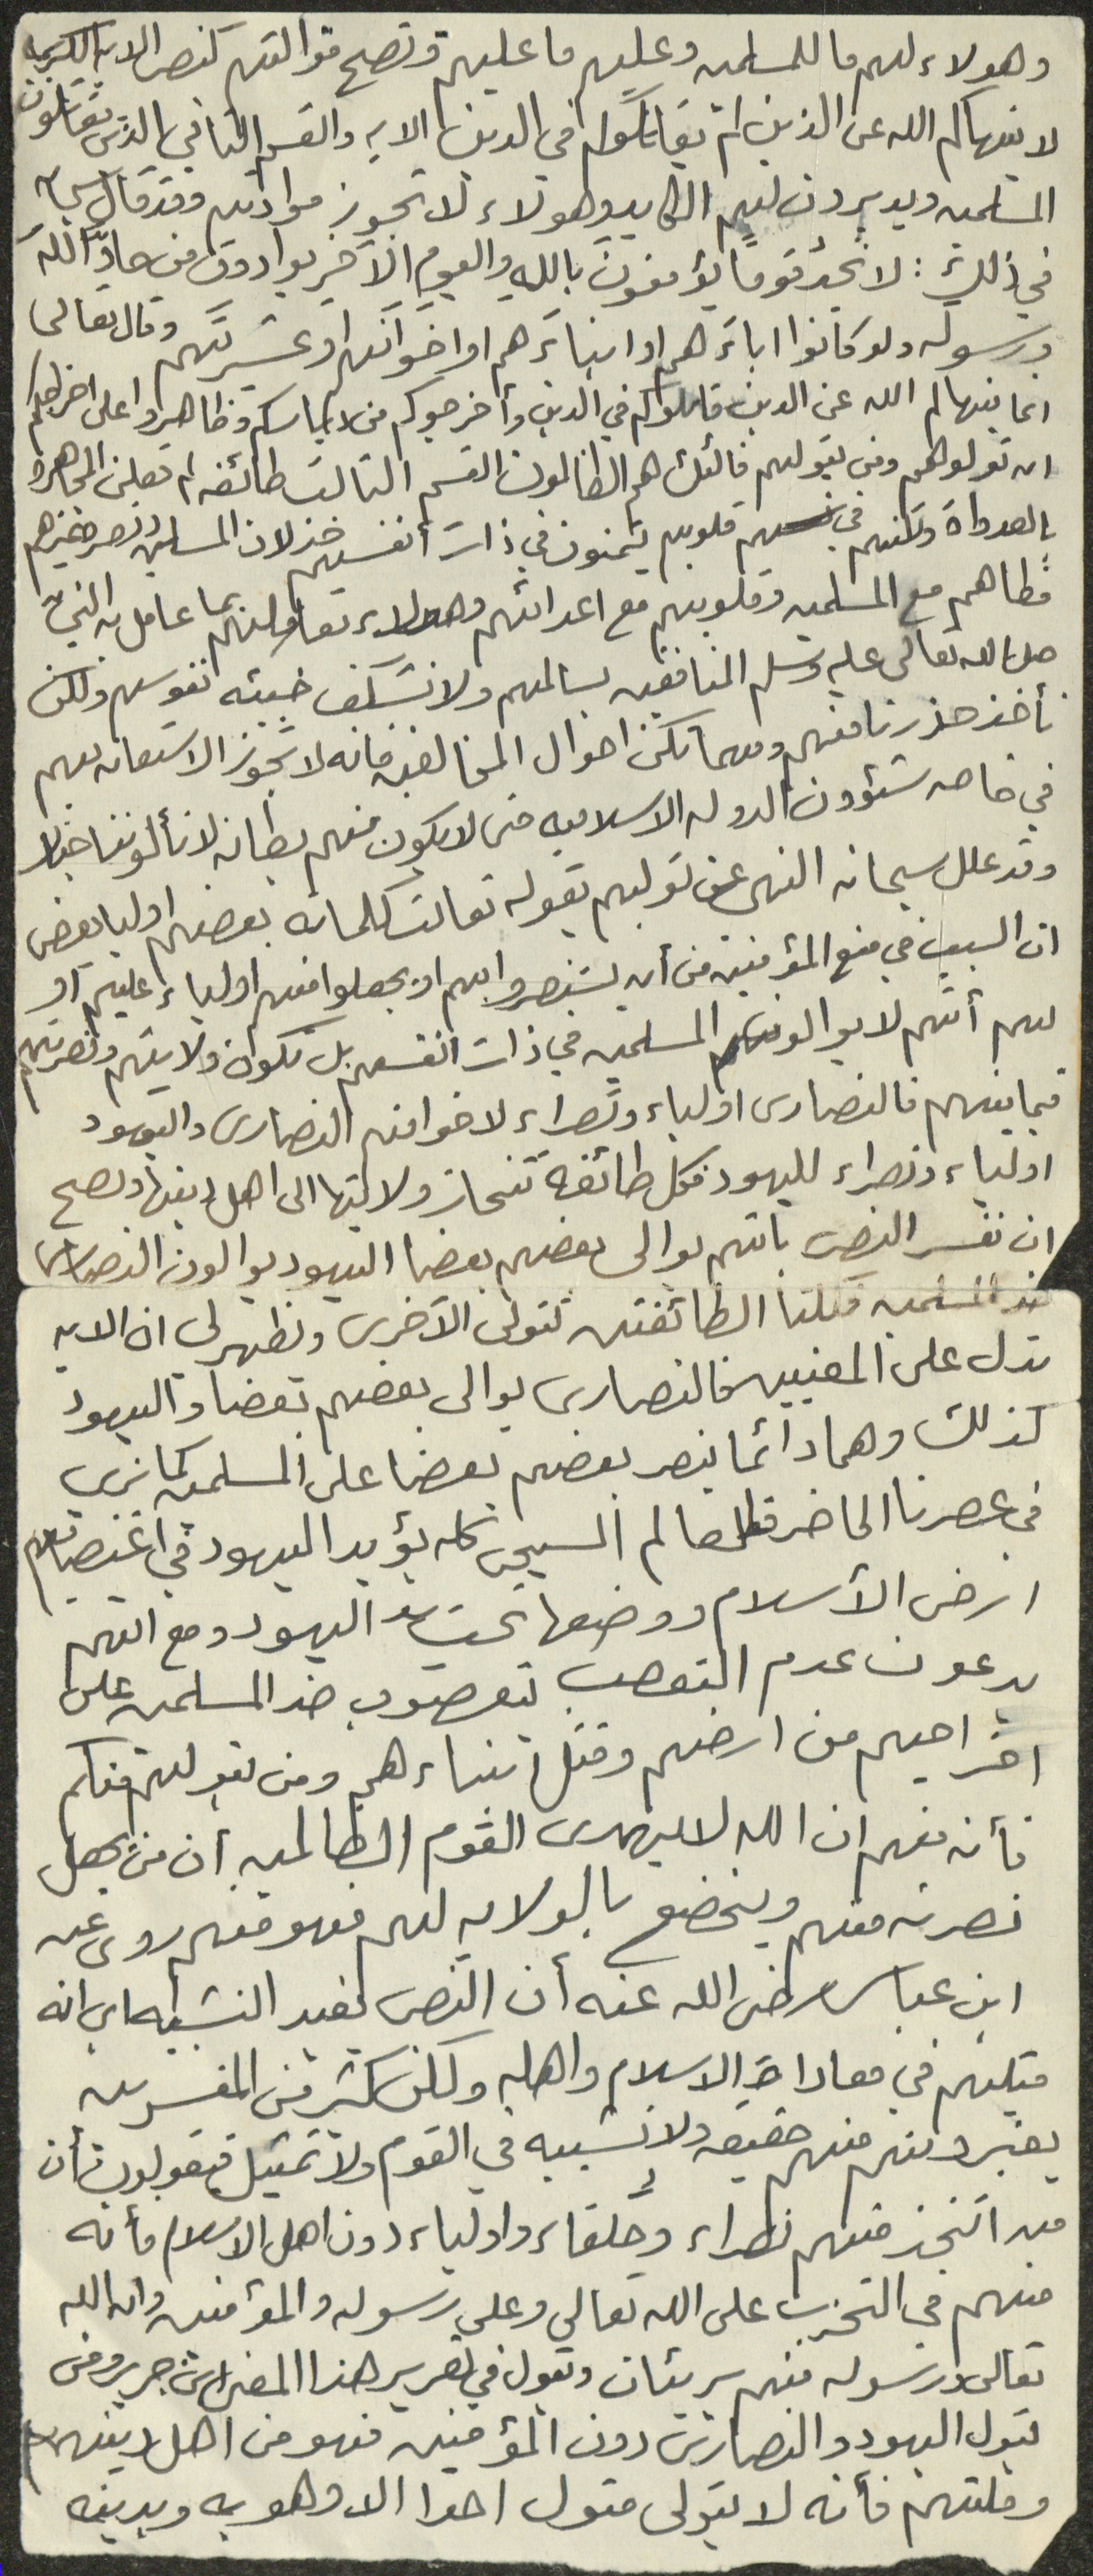 وهولاء لهم ما للمسلمين وعليهم ما عليهم وتصح موالتهم كنص الايه الكريمه
لا ينهاكم الله عن الذين لم يقاتلوكم في الدين الايه والقسم الثاني الذين يقاتلون
المسلمين ويديرون لهم المكايد وهولاء لا تجوز موادتهم وقد قال سبحانه
في ذلك : لا تجد قوماً يؤمنون بالله واليوم الآخر يوادون من حادّ الله
ورسوله ولو كانوا اباءَهم او ابناءَهم او اخوانهم او عشيرتهم وقال تعالى
انما ينهاكم الله عن الذين قاتلوكم في الدين وأخرجوكم من دياركم وظاهروا على اخراجكم
ان تولوهم ومن يتولهم فأولئك هم الظالمون القسم الثالث طائفه لم تعلن المجاهره
بالعدواة ولكنهم في قلوبهم يتمنون في ذات أنفسهم خذلان المسلمين ونصر غيرهم
فظاهم مع المسلمين وقلوبهم مع اعدائهم وهولاء تعاملهم بما عامل به النبي
صلى الله تعالى عليه وسلم المنافقين يسالمهم ولا نتسكف خبيئه نفوسهم ولكن
نأخذ حذرنا منهم ومهما تكن احوال المخالفين فانه لا تجوز الاستعانه بهم
في خاصه شئوون الدوله الاسلاميه حتى لا يكون منهم بطانه لا نألوننا خبالا
وقد علل سبحانه النهى عن توليهم بقوله تعالت كلماته بعضهم اوليا بعض
ان السبب في منع المؤمنين من أن يستنصروا بهم او يجعلوا منهم اولياء عليهم او
لهم أنهم لا يوالون المسلمين في ذات انفسهم بل تكون ولايتهم ونصرتهم
فيما بينهم فالنصارى اولياء ونصراء لاخوانهم النصارى واليهود
اولياء ونصراء لليهود فكل طائفه تنحاز ولايتها الى اهل دينها ويصح
ان نفسر النص بانهم يوالى بعضهم بعضا اليهود يوالون النصارى
ضد المسلمين فكلتا الطائفتين تتولى الآخرى ونظهر لى ان الايه
تدل على المعنيين فالنصارى يوالى بعضهم بعضا واليهود
كذلك وهما دائما ينصر بعضهم بعضا على المسلمين كما نرى
في عصرنا الحاضر فالعالم المسيحى كله يؤيد اليهود في اغتصابهم
ارض الأسلام ووضعها تحت يد اليهود ومع انهم
يدعون عدم التعصب يتعصوب ضد المسلمين على
اخراجهم من ارضهم وقتل ابناءهم ومن يتولهم منكم
فأنه منهم ان الله لا يهدى القوم الظالمين أن من يجعل
نصرته منهم ويخضع بالولايه لهم فهو منهم روى عن
ابن عباس رضى الله عنه أن النص يفيد التشبيه اي انه
مثلهم في معاداة الاسلام واهله ولكن كثير من المفسرين
يعتبرونه منهم حقيقه ولا تشبيه في القوم ولا تمثيل فيقولون بأن
من اتخذ منهم نصراء وحلفاء واولياء دون اهل الاسلام فأنه
منهم في التحزب على الله تعالى وعلى رسوله والمؤمنين وان الله
تعالى ورسوله منهم بريئان ونقول في تقرير هذا المعنى ابن جرير ومن
يتول اليهود والنصارى دون المؤمنين فهو من اهل دينهم
وملتهم فأنه لا يتولى متول احدا الا وهو به وبدينه